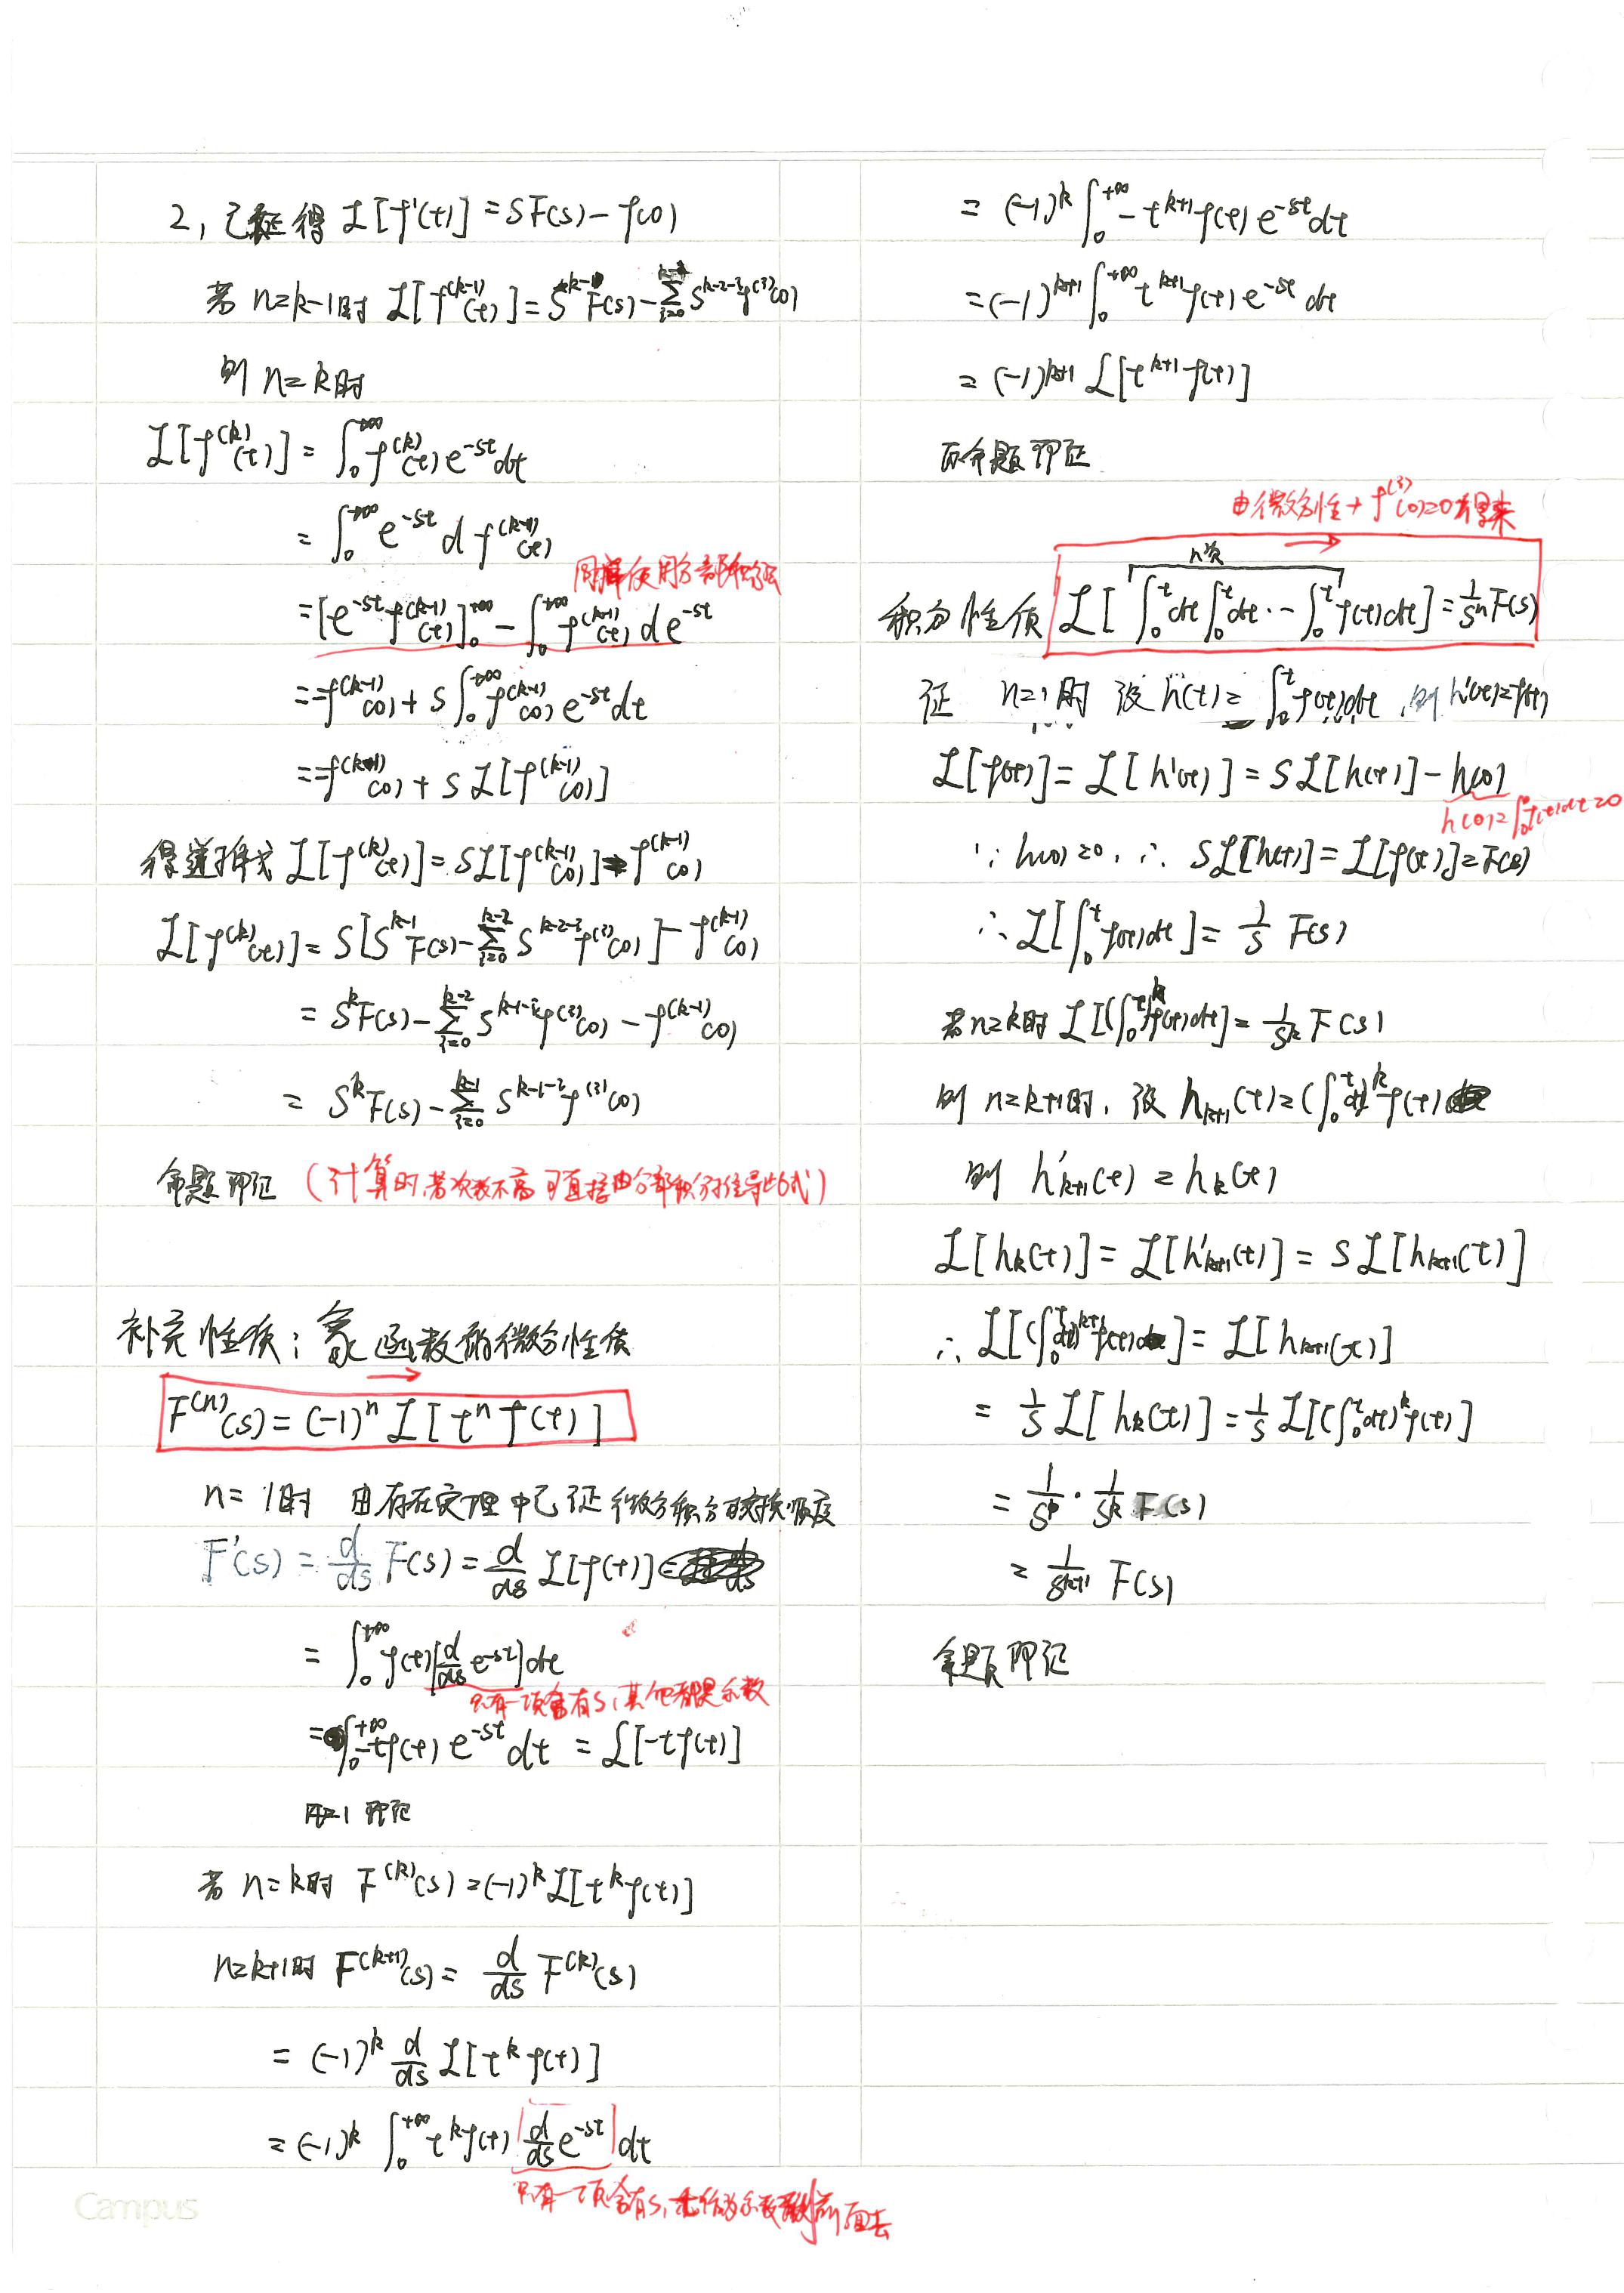 2, 已证得 ℒ[f'(t)] = SF(s) - f(0)
若 n=k-1时 ℒ[f^{(k-1)}(t)] = S^{k-1}F(s) - \sum_{i=0}^{k-2} S^{k-2-i} f^{(i)}(0)
则 n=k时
ℒ[f^{(k)}(t)] = \int_0^{+∞} f^{(k)}(t) e^{-st} dt
= \int_0^{+∞} e^{-st} d f^{(k-1)}(t)
同样使用分部积分法
= [e^{-st} f^{(k-1)}(t)]_0^{+∞} - \int_0^{+∞} f^{(k-1)}(t) d e^{-st}
= -f^{(k-1)}(0) + S \int_0^{+∞} f^{(k-1)}(0) e^{-st} dt
= -f^{(k-1)}(0) + S ℒ[f^{(k-1)}(0)]
得递推式 ℒ[f^{(k)}(t)] = Sℒ[f^{(k-1)}(0)] - f^{(k-1)}(0)
ℒ[f^{(k)}(t)] = S[S^{k-1}F(s) - \sum_{i=0}^{k-2} S^{k-2-i} f^{(i)}(0)] - f^{(k-1)}(0)
= S^k F(s) - \sum_{i=0}^{k-2} S^{k-1-i} f^{(i)}(0) - f^{(k-1)}(0)
= S^k F(s) - \sum_{i=0}^{k-1} S^{k-1-i} f^{(i)}(0)
命题即证 (计算时,若次数不高可直接由分部积分推导此式)
补充性质: 象函数的微分性质
F^{(n)}(s) = (-1)^n ℒ[t^n f(t)]
n = 1时 由存在定理中已证 微分积分可交换顺序
F'(s) = \frac{d}{ds} F(s) = \frac{d}{ds} ℒ[f(t)]
= \int_0^{+∞} f(t) [\frac{d}{ds} e^{-st}] dt
只有一项含有s, 其他都是系数
= \int_0^{+∞} -tf(t) e^{-st} dt = ℒ[-tf(t)]
n=1 即证
若 n=k时 F^{(k)}(s) = (-1)^k ℒ[t^k f(t)]
n=k+1时 F^{(k+1)}(s) = \frac{d}{ds} F^{(k)}(s)
= (-1)^k \frac{d}{ds} ℒ[t^k f(t)]
= (-1)^k \int_0^{+∞} t^k f(t) [\frac{d}{ds} e^{-st}] dt
只有一项含有s, 作为系数到前面去
Campus
= (-1)^k \int_0^{+∞} -t^{k+1} f(t) e^{-st} dt
= (-1)^{k+1} \int_0^{+∞} t^{k+1} f(t) e^{-st} dt
= (-1)^{k+1} ℒ[t^{k+1} f(t)]
命题即证
由微分性+f^{(i)}(0)=0得来
n次
积分性质 ℒ[\int_0^t dt \int_0^t dt ··· \int_0^t f(t)dt] = \frac{1}{S^n} F(s)
证 n=1时 设 h(t) = \int_0^t f(t)dt, 则 h'(t)=f(t)
ℒ[f(t)] = ℒ[h'(t)] = Sℒ[h(t)] - h(0)
h(0) = \int_0^0 f(t)dt = 0
∵ h(0)=0, ∴ Sℒ[h(t)] = ℒ[f(t)] = F(s)
∴ ℒ[\int_0^t f(t)dt] = \frac{1}{S} F(s)
若n=k时 ℒ[(\int_0^t)^k f(t)dt] = \frac{1}{S^k} F(s)
则 n=k+1时, 设 h_{k+1}(t) = (\int_0^t dt)^k f(t)
则 h'_{k+1}(t) = h_k(t)
ℒ[h_k(t)] = ℒ[h'_{k+1}(t)] = Sℒ[h_{k+1}(t)]
∴ ℒ[(\int_0^t dt)^{k+1} f(t)] = ℒ[h_{k+1}(t)]
= \frac{1}{S} ℒ[h_k(t)] = \frac{1}{S} ℒ[(\int_0^t dt)^k f(t)]
= \frac{1}{S} · \frac{1}{S^k} F(s)
= \frac{1}{S^{k+1}} F(s)
命题即证